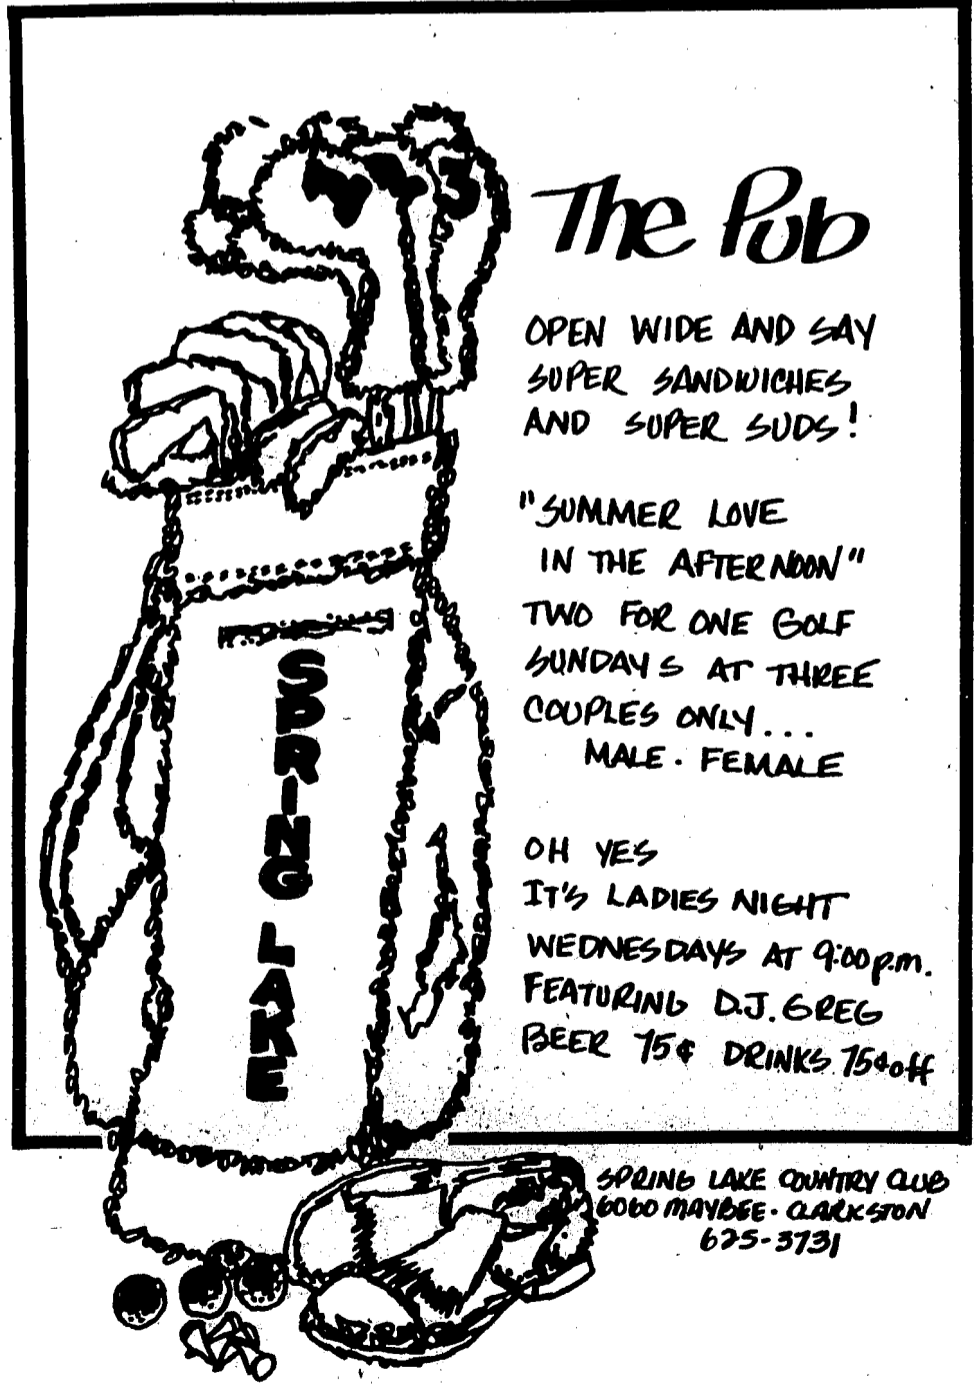 3
The Pub
OPEN WIDE AND SAY
SUPER SANDWICHES
AND SUPER SUDS!
"SUMMER LOVE
IN THE AFTERNOON"
TWO FOR ONE GOLF
SUNDAYS AT THREE
COUPLES ONLY...
MALE. FEMALE
OH YES
IT'S LADIES NIGHT
WEDNESDAYS AT 9:00 p.m.
FEATURING D.J. GREG
BEER 75¢ DRINKS 75¢ off
SPRING LAKE
SPRING LAKE COUNTRY CLUB
6060 MAYBEE. CLARKSTON
625-3731